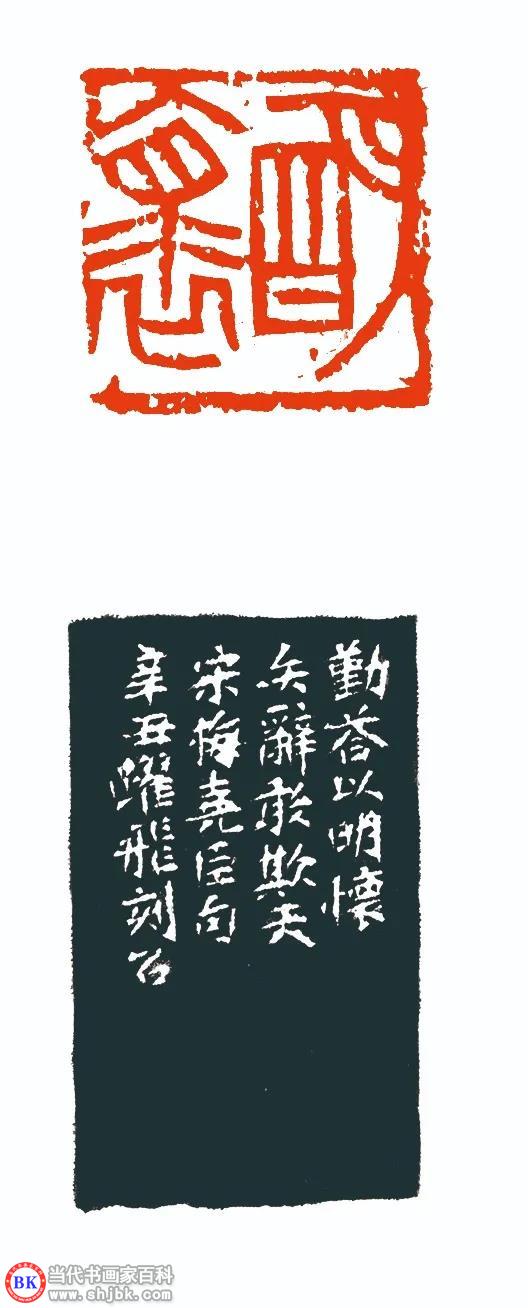 勤荅以明懷
矢辭敢欺天
宋梅堯臣句
辛丑躍飛刻石
BK
当代书画家百科
www.shjbk.com